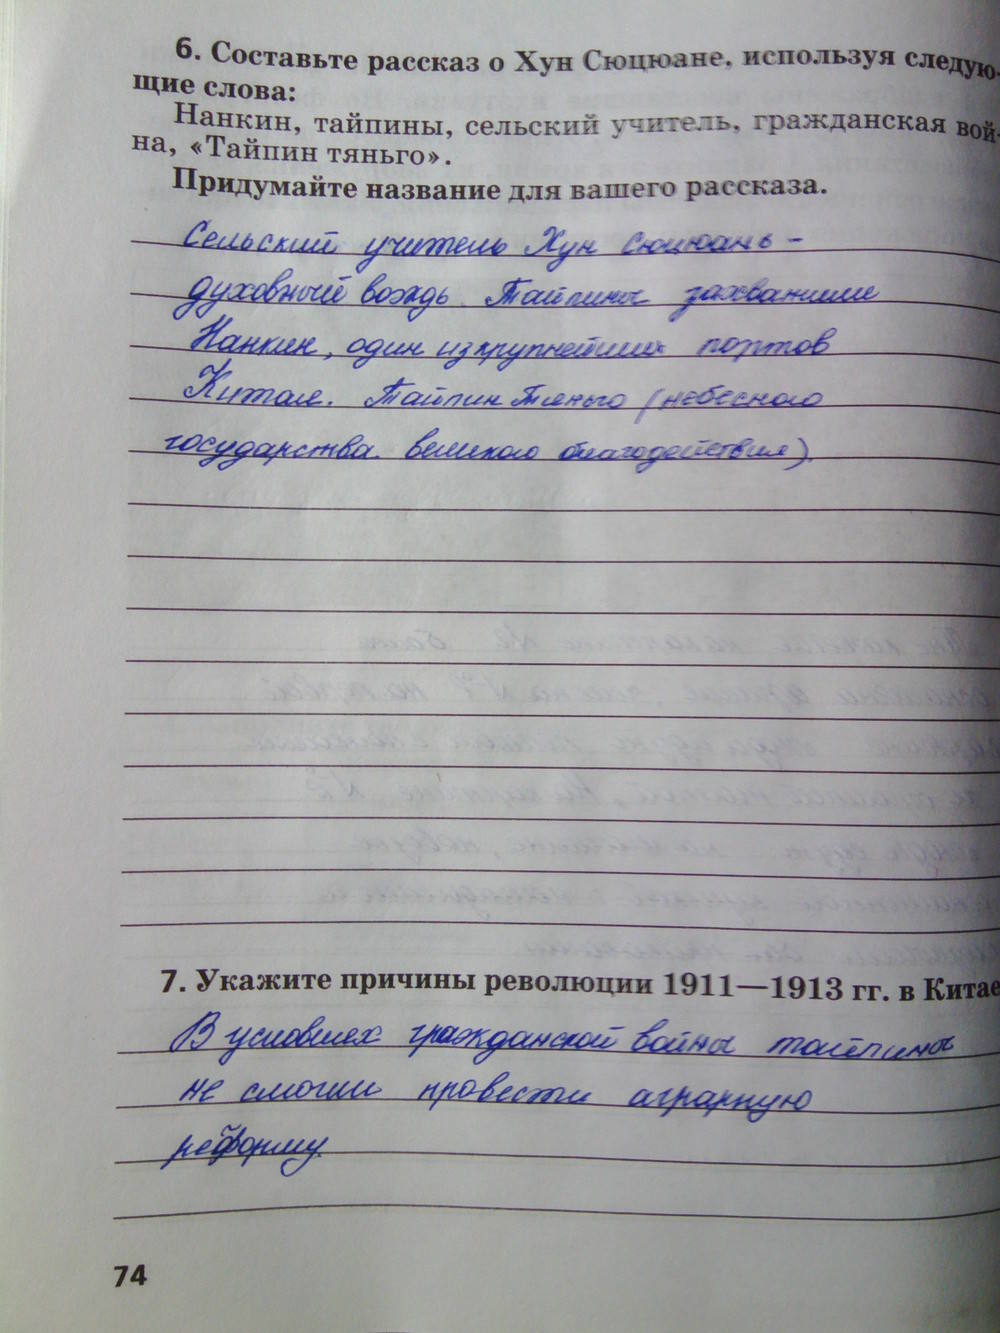 6. Составьте рассказ о Хун Сюцюане, используя следую-
щие слова:
Нанкин, тайпины, сельский учитель, гражданская вой-
на, «Тайпин тяньго».
Придумайте название для вашего рассказа.
Сельский учитель Хун Сюцюань -
духовный вождь. Тайпины захватили
Нанкин, один из крупнейших портов
Китая. Тайпин Тяньго (небесного
государства великого благодействия).
7. Укажите причины революции 1911—1913 гг. в Китае
В условиях гражданской войны тайпины
не смогли провести аграрную
реформу.
74